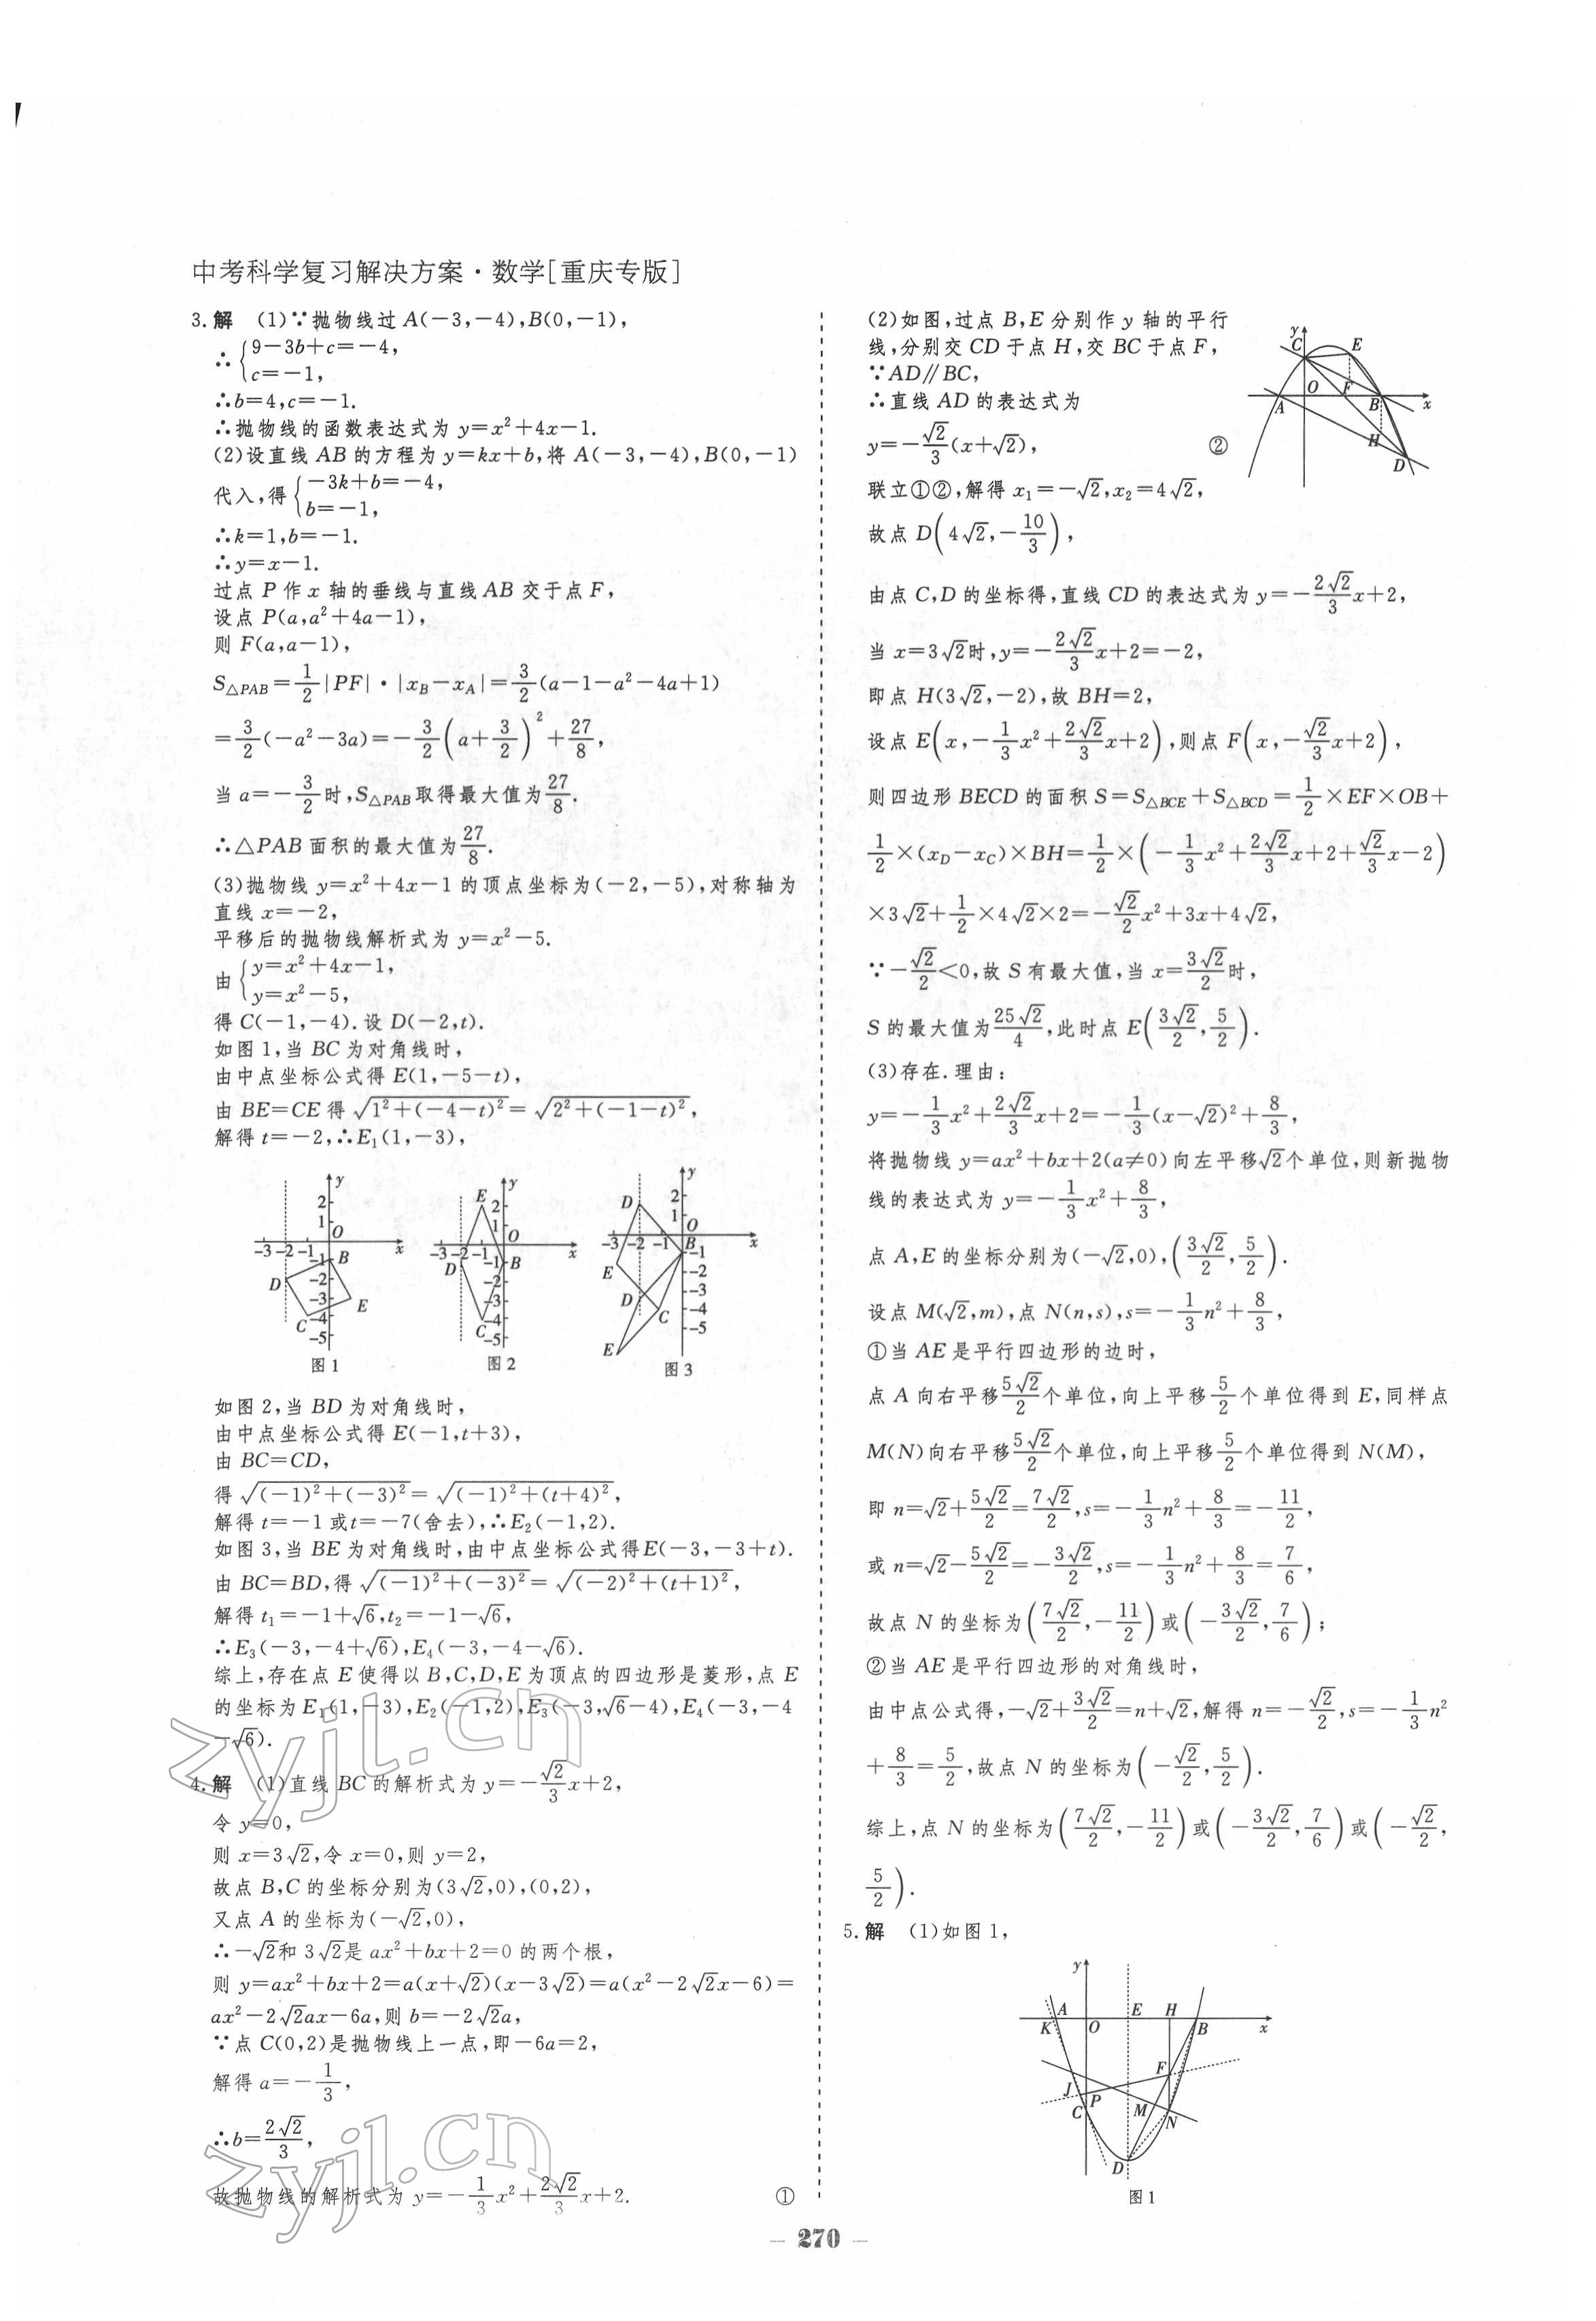 中考科学复习解决方案·数学[重庆专版]
3.解 (1)∵抛物线过A(-3,-4),B(0,-1),
∴{9-3b+c=-4,
c=-1,
∴b=4,c=-1.
∴抛物线的函数表达式为y=x²+4x-1.
(2)设直线AB的方程为y=kx+b,将A(-3,-4),B(0,-1)
代入,得{-3k+b=-4,
b=-1,
∴k=1,b=-1.
∴y=x-1.
过点P作x轴的垂线与直线AB交于点F,
设点P(a,a²+4a-1),
则F(a,a-1),
S△PAB=1/2|PF|·|xB-xA|=3/2(a-1-a²-4a+1)
=3/2(-a²-3a)=-3/2(a+3/2)²+27/8,
当a=-3/2时,S△PAB取得最大值为27/8.
∴△PAB面积的最大值为27/8.
(3)抛物线y=x²+4x-1的顶点坐标为(-2,-5),对称轴为
直线x=-2,
平移后的抛物线解析式为y=x²-5.
由{y=x²+4x-1,
y=x²-5,
得C(-1,-4).设D(-2,t).
如图1,当BC为对角线时,
由中点坐标公式得E(1,-5-t),
由BE=CE得√(1²+(-4-t)²)=√(2²+(-1-t)²),
解得t=-2,∴E₁(1,-3),
y 2 1 O -3 -2 -1 x -1 B D -2 -3 E C -4 -5
图1
y E 2 1 O -3 -2 -1 x -1 B D -2 -3 C -4 -5
图2
y D 2 1 O -3 -2 -1 x B -1 E -2 -3 D -4 C -5 E
图3
如图2,当BD为对角线时,
由中点坐标公式得E(-1,t+3),
由BC=CD,
得√((-1)²+(-3)²)=√((-1)²+(t+4)²),
解得t=-1或t=-7(舍去),∴E₂(-1,2).
如图3,当BE为对角线时,由中点坐标公式得E(-3,-3+t).
由BC=BD,得√((-1)²+(-3)²)=√((-2)²+(t+1)²),
解得t₁=-1+√6,t₂=-1-√6,
∴E₃(-3,-4+√6),E₄(-3,-4-√6).
综上,存在点E使得以B,C,D,E为顶点的四边形是菱形,点E
的坐标为E₁(1,-3),E₂(-1,2),E₃(-3,√6-4),E₄(-3,-4
-√6).
4.解 (1)直线BC的解析式为y=-√2/3x+2,
令y=0,
则x=3√2,令x=0,则y=2,
故点B,C的坐标分别为(3√2,0),(0,2),
又点A的坐标为(-√2,0),
∴-√2和3√2是ax²+bx+2=0的两个根,
则y=ax²+bx+2=a(x+√2)(x-3√2)=a(x²-2√2x-6)=
ax²-2√2ax-6a,则b=-2√2a,
∵点C(0,2)是抛物线上一点,即-6a=2,
解得a=-1/3,
∴b=2√2/3,
故抛物线的解析式为y=-1/3x²+2√2/3x+2. ①
(2)如图,过点B,E分别作y轴的平行
线,分别交CD于点H,交BC于点F,
∵AD∥BC,
∴直线AD的表达式为
y=-√2/3(x+√2), ②
y C E O F A B x H D
联立①②,解得x₁=-√2,x₂=4√2,
故点D(4√2,-10/3),
由点C,D的坐标得,直线CD的表达式为y=-2√2/3x+2,
当x=3√2时,y=-2√2/3x+2=-2,
即点H(3√2,-2),故BH=2,
设点E(x,-1/3x²+2√2/3x+2),则点F(x,-√2/3x+2),
则四边形BECD的面积S=S△BCE+S△BCD=1/2×EF×OB+
1/2×(xD-xC)×BH=1/2×(-1/3x²+2√2/3x+2+√2/3x-2)
×3√2+1/2×4√2×2=-√2/2x²+3x+4√2,
∵-√2/2<0,故S有最大值,当x=3√2/2时,
S的最大值为25√2/4,此时点E(3√2/2,5/2).
(3)存在.理由:
y=-1/3x²+2√2/3x+2=-1/3(x-√2)²+8/3,
将抛物线y=ax²+bx+2(a≠0)向左平移√2个单位,则新抛物
线的表达式为y=-1/3x²+8/3,
点A,E的坐标分别为(-√2,0),(3√2/2,5/2).
设点M(√2,m),点N(n,s),s=-1/3n²+8/3,
①当AE是平行四边形的边时,
点A向右平移5√2/2个单位,向上平移5/2个单位得到E,同样点
M(N)向右平移5√2/2个单位,向上平移5/2个单位得到N(M),
即n=√2+5√2/2=7√2/2,s=-1/3n²+8/3=-11/2,
或n=√2-5√2/2=-3√2/2,s=-1/3n²+8/3=7/6,
故点N的坐标为(7√2/2,-11/2)或(-3√2/2,7/6);
②当AE是平行四边形的对角线时,
由中点公式得,-√2+3√2/2=n+√2,解得n=-√2/2,s=-1/3n²
+8/3=5/2,故点N的坐标为(-√2/2,5/2).
综上,点N的坐标为(7√2/2,-11/2)或(-3√2/2,7/6)或(-√2/2,
5/2).
5.解 (1)如图1,
y A E H K O B x F J P C M N D
图1
zyjl.cn
zyjl.cn
270